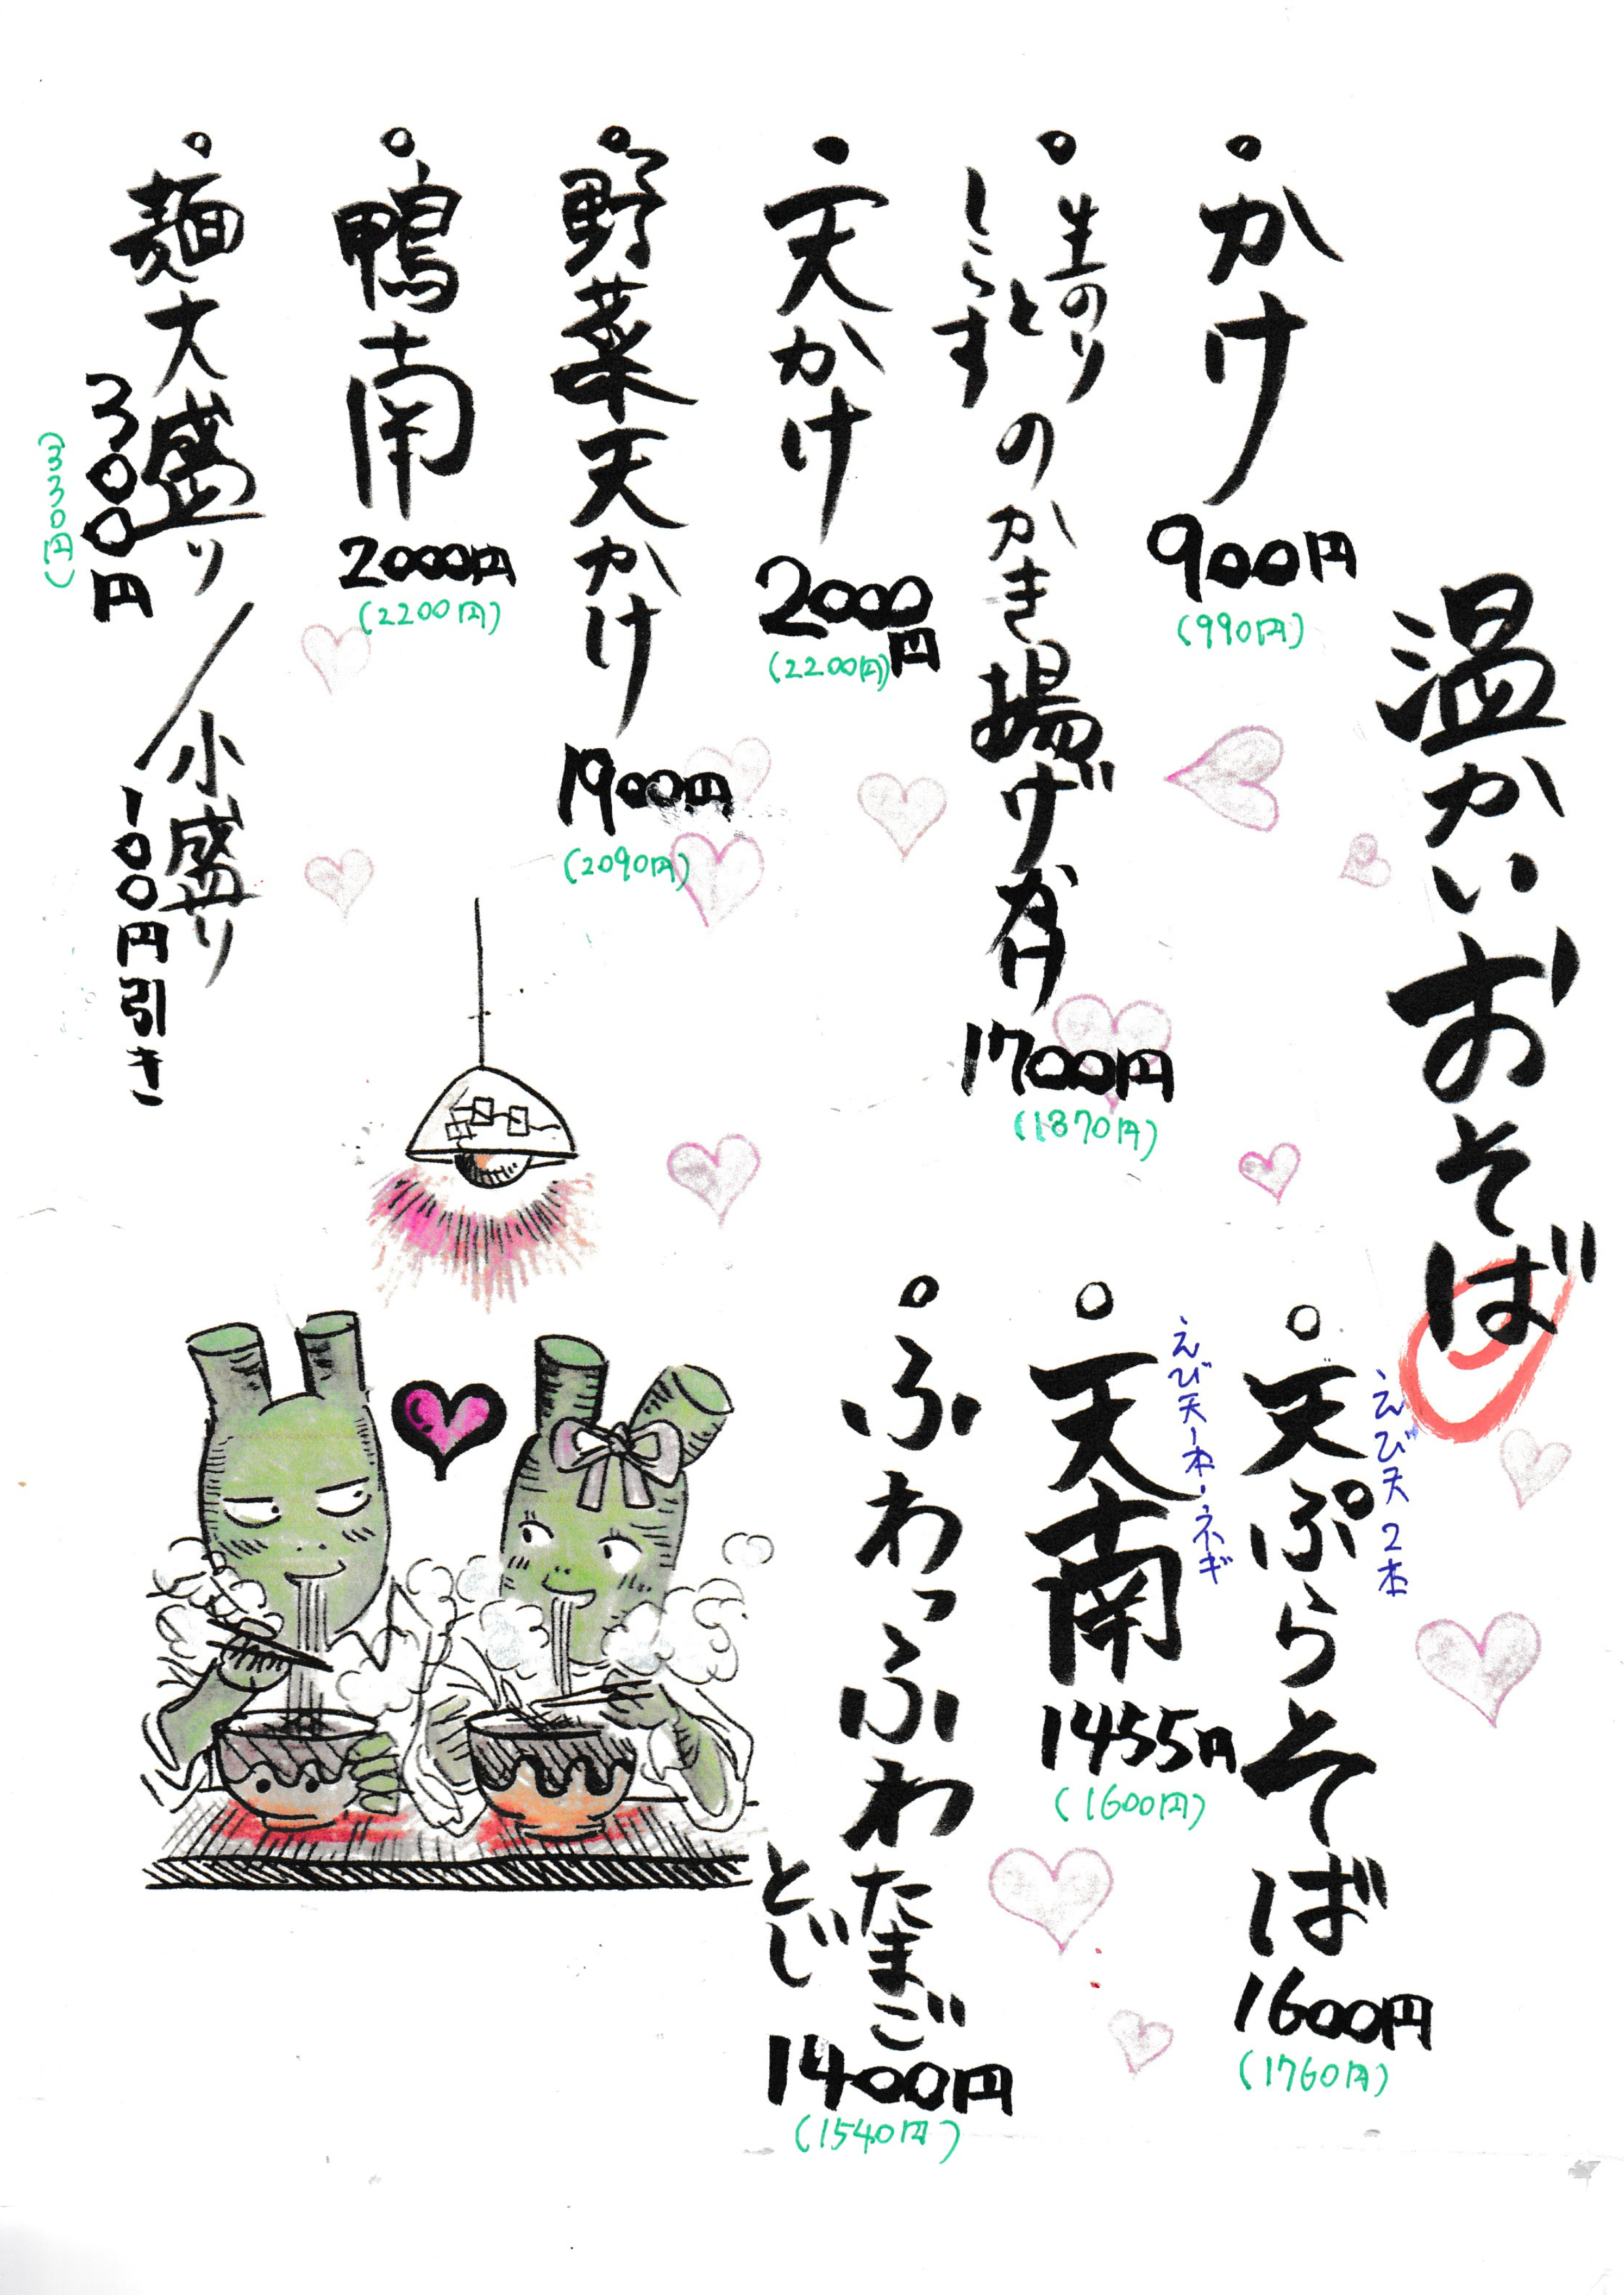 温かいおそば
かけ
900円
(990円)
生のりと
しらす
のかき揚げかけ
1700円
(1870円)
天かけ
2000円
(2200円)
野菜天かけ
1900円
(2090円)
鴨南
2000円
(2200円)
麺大盛り/小盛り
300円
(330円)
100円引き
えび天2本
天ぷらそば
1600円
(1760円)
えび天一本・ネギ
天南
1455円
(1600円)
ふわっふわ
たまご
とじ
1400円
(1540円)